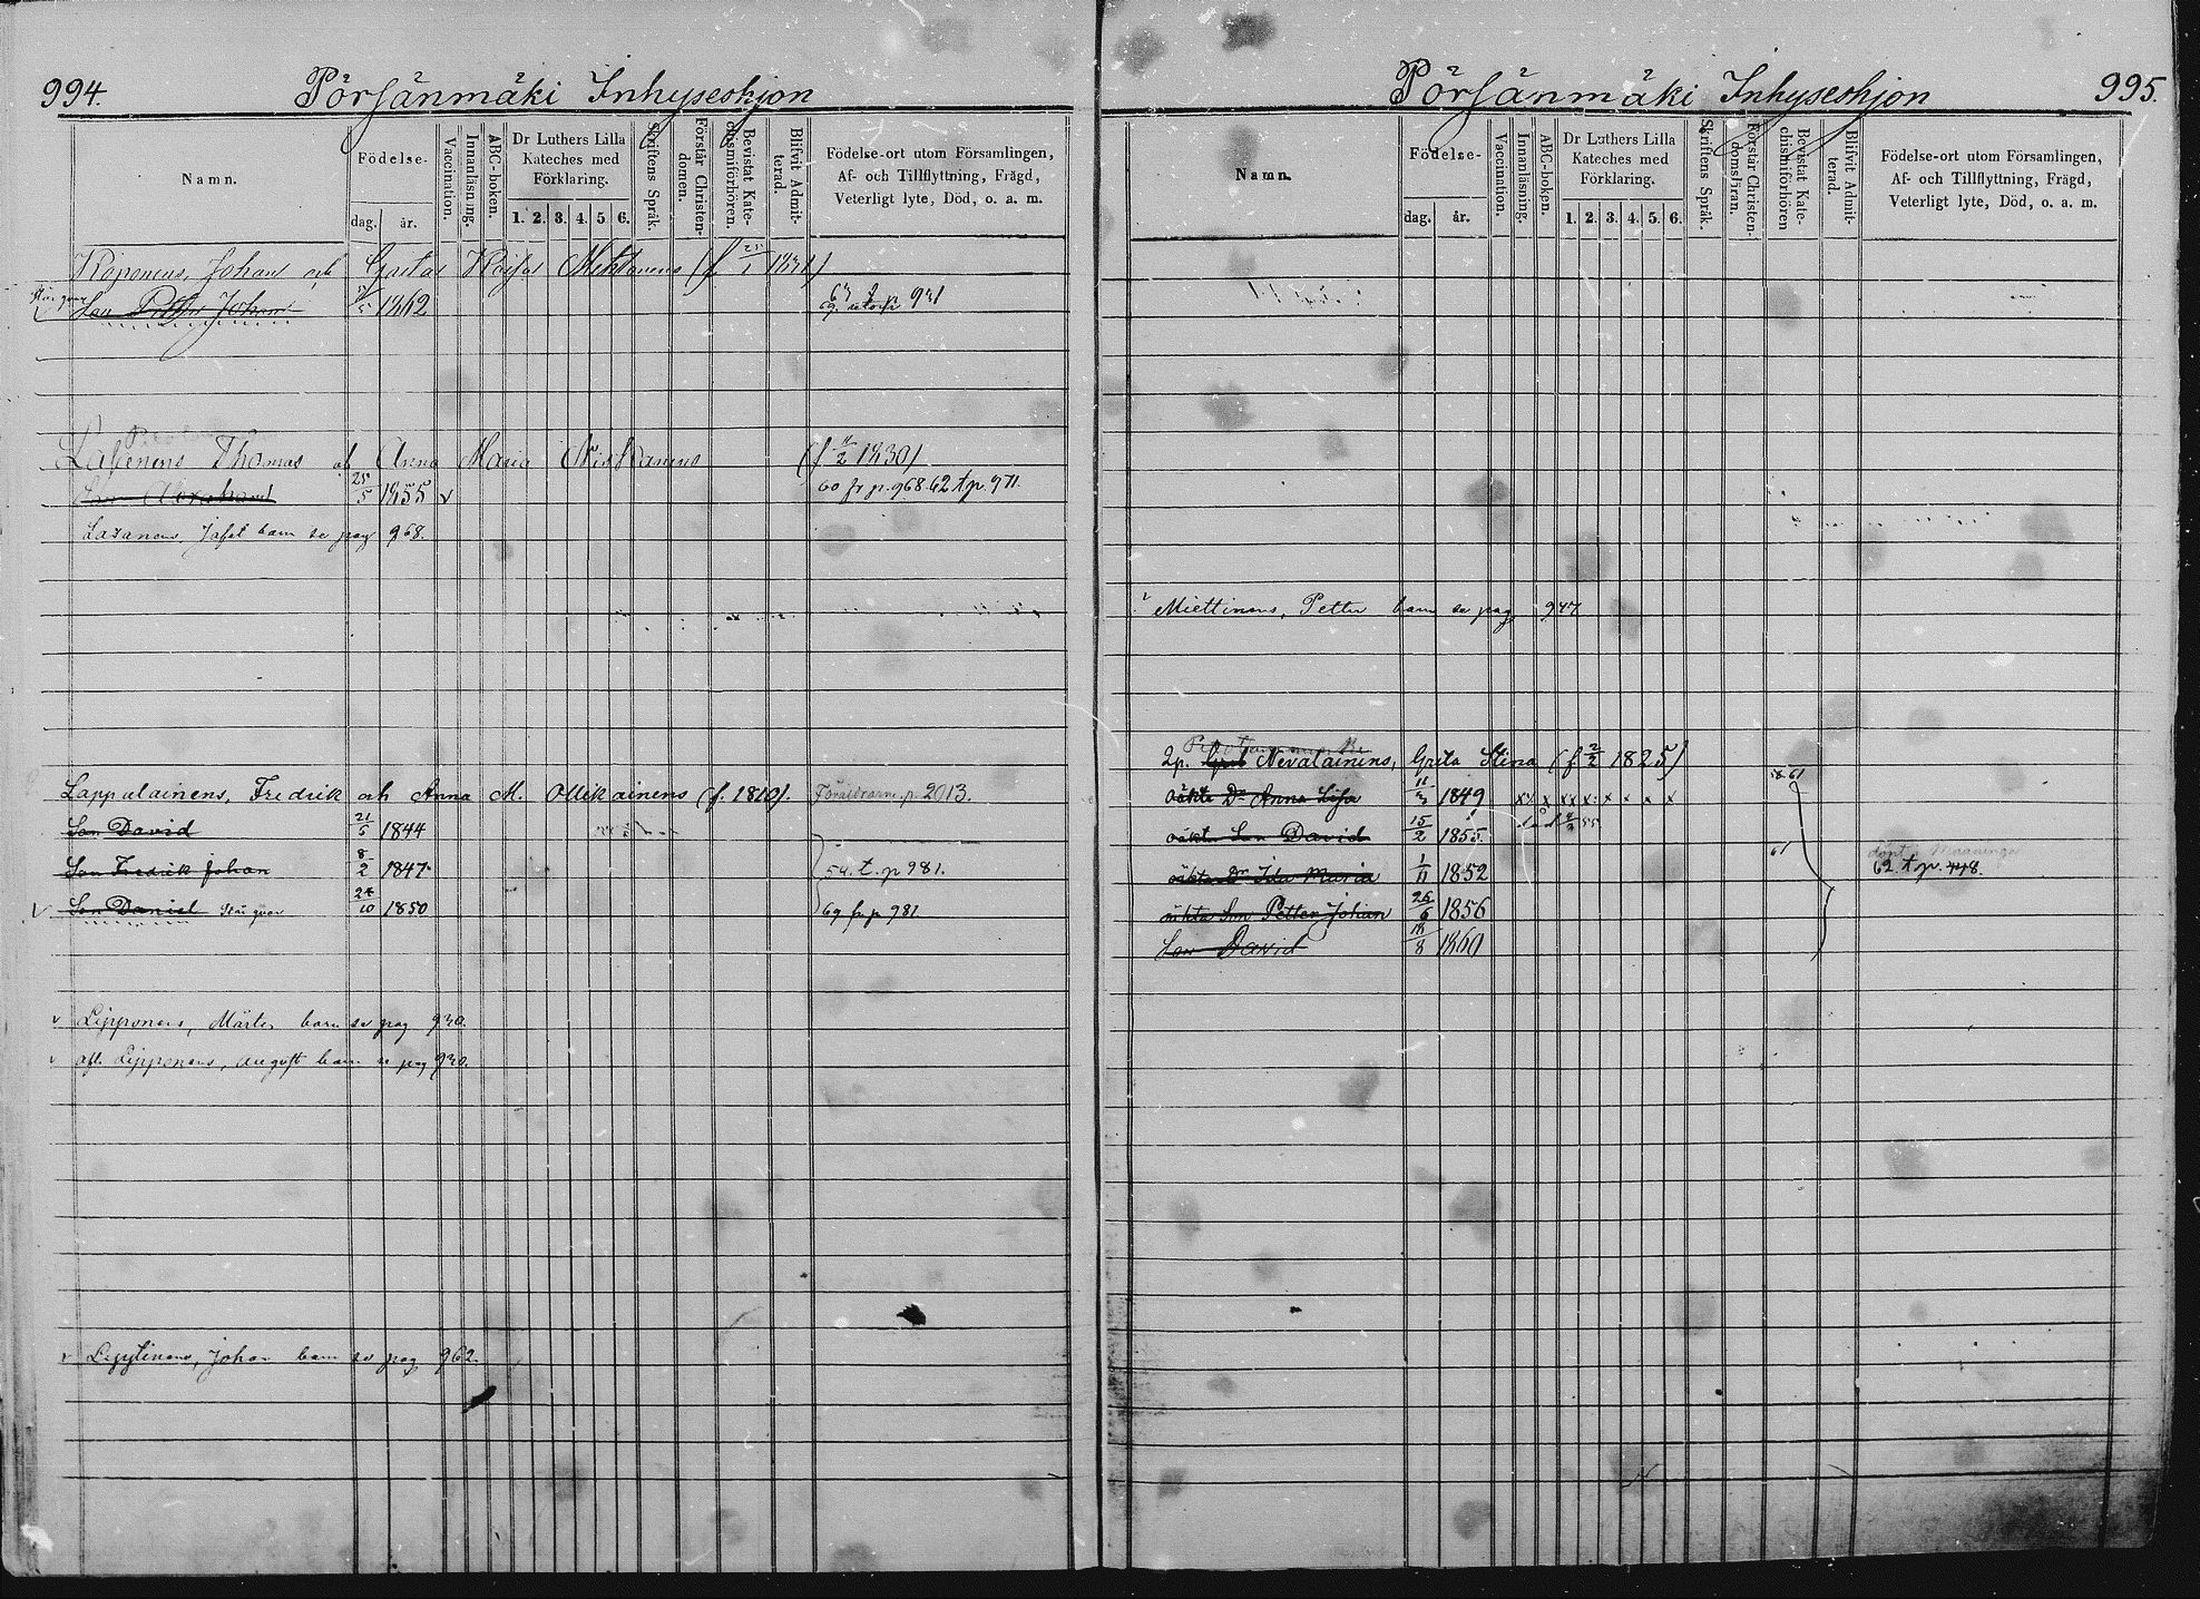 994. Pörsänmäki Inhyseshjon
Namn.
Födelse-
dag. år.
Vaccination.
Innanläsning.
ABC-boken.
Dr Luthers Lilla Kateches med Förklaring.
1. 2. 3. 4. 5. 6.
Skriftens Språk.
Förstår Christendomen.
Bevistat Katechismiförhören.
Blifvit Admitterad.
Födelse-ort utom Församlingen,
Af- och Tillflyttning, Frägd,
Veterligt lyte, Död, o. a. m.
Koponens, Johan och Greta Kaisa (f 25/1 1831)
Son Petter Johan 1862 p 931
Thomas Anna Maria (f 11/2 1830)
Son Abraham 25/5 1855 v 60 fr p. 968. 62 t p. 971.
Lasanens, barn se pag 968.
Lappalainens, Fredrik och Anna M. Ollikainens (f. 1810). Föräldrarne p. 2013.
Son David 21/5 1844
Son Fredrik Johan 8/2 1847 54. t. p 981.
Son Daniel 24/10 1850 69 fr p 981
v Lipponens, Mårten barn se pag 930.
v Lipponens, August barn se pag 930.
v Johan barn se pag 962.
Pörsänmäki Inhyseshjon 995.
Namn.
Födelse-
dag. år.
Vaccination.
Innanläsning.
ABC-boken.
Dr Luthers Lilla Kateches med Förklaring.
1. 2. 3. 4. 5. 6.
Skriftens Språk.
Förstår Christendomsläran.
Bevistat Katechismiförhören
Blifvit Admitterad.
Födelse-ort utom Församlingen,
Af- och Tillflyttning, Frägd,
Veterligt lyte, Död, o. a. m.
Miettinens, Petter barn se pag 947
2p. Nevalainens, Greta Stina (f 2/2 1825)
oäkta Dr Anna Lisa 1849 xx x xx x x x x x 61
oäkta Son David 15/2 1855.
oäkta Dr Ida Maria 1/11 1852 61 62 t p.
oäkta Son Petter Johan 26/6 1856
Son David 18/8 1860